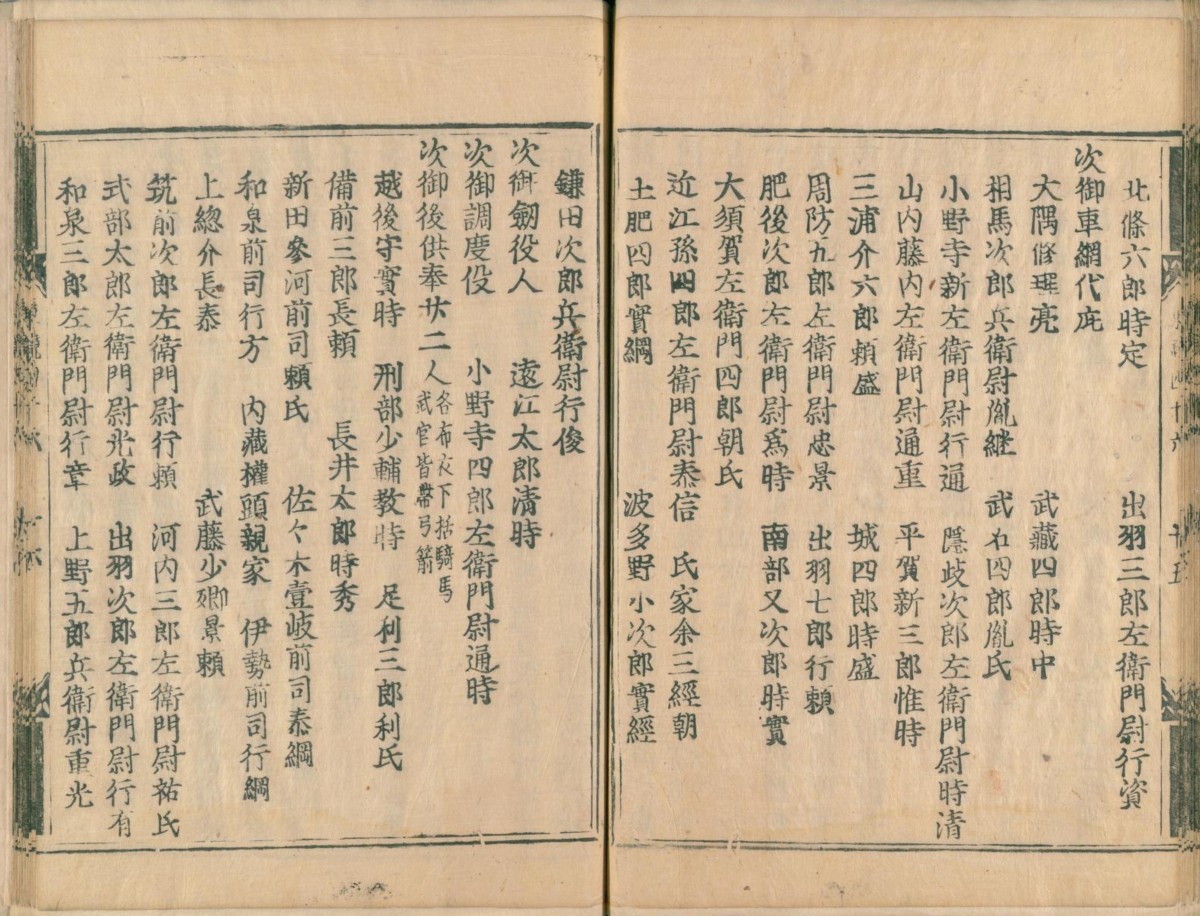 北條六郎時定 出羽三郎左衛門尉行資
次御車網代庇
大隅修理亮 武藏四郎時中
相馬次郎兵衛尉胤継 武石四郎胤氏
小野寺新左衛門尉行通 隱歧次郎左衛門尉時清
山内藤内左衛門尉通重 平賀新三郎惟時
三浦介六郎頼盛 城四郎時盛
周防五郎左衛門尉忠景 出羽七郎行頼
肥後次郎左衛門尉爲時 南部又次郎時實
大須賀左衛門四郎朝氏
近江孫四郎左衛門尉泰信 氏家余三經朝
土肥四郎實綱 波多野小次郎實經
鎌田次郎兵衛尉行俊
次御劔役人 遠江太郎清時
次御調度役 小野寺四郎左衛門尉通時
次御後供奉廿二人 各布衣下括騎馬
武官皆帶弓箭
越後守實時 刑部少輔教時 足利三郎利氏
備前三郎長頼 長井太郎時秀
新田參河前司頼氏 佐々木壹岐前司泰綱
和泉前司行方 内藏權頭親家 伊勢前司行綱
上總介長泰 武藤少卿景頼
筑前次郎左衛門尉行頼 河内三郎左衛門尉祐氏
式部太郎左衛門尉光政 出羽次郎左衛門尉行有
和泉三郎左衛門尉行章 上野五郎兵衛尉重光